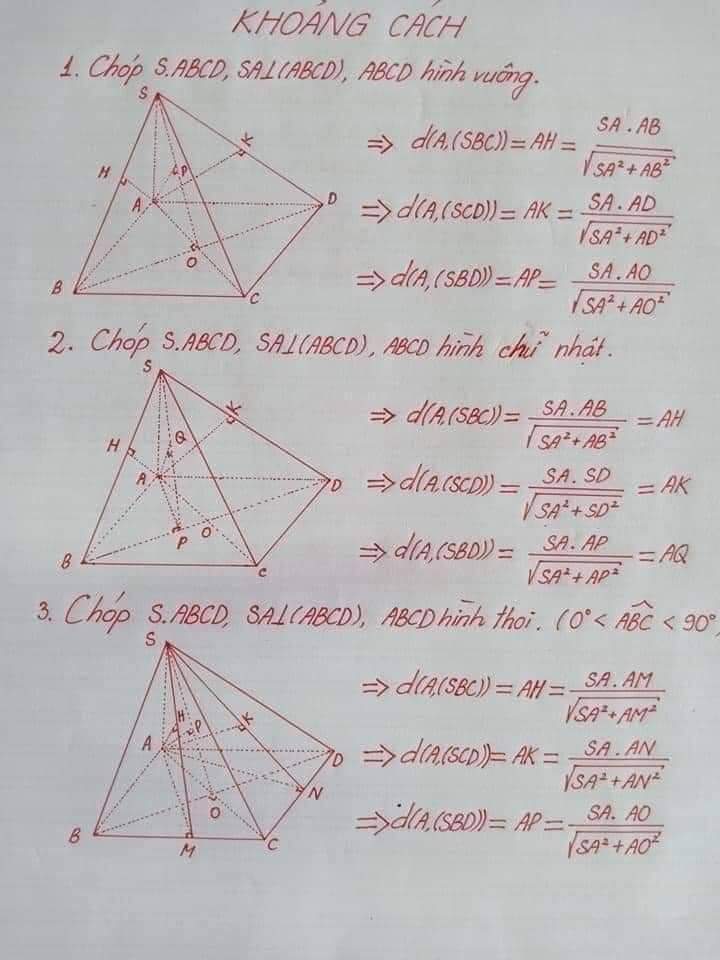 KHOẢNG CÁCH
1. Chóp S.ABCD, SA⊥(ABCD), ABCD hình vuông.
S
K
H
P
A
D
O
B
C
⇒ d(A,(SBC)) = AH = SA.AB / √(SA² + AB²)
⇒ d(A,(SCD)) = AK = SA.AD / √(SA² + AD²)
⇒ d(A,(SBD)) = AP = SA.AO / √(SA² + AO²)
2. Chóp S.ABCD, SA⊥(ABCD), ABCD hình chữ nhật.
S
K
H
Q
A
D
P
O
B
C
⇒ d(A,(SBC)) = SA.AB / √(SA² + AB²) = AH
⇒ d(A,(SCD)) = SA.SD / √(SA² + SD²) = AK
⇒ d(A,(SBD)) = SA.AP / √(SA² + AP²) = AQ
3. Chóp S.ABCD, SA⊥(ABCD), ABCD hình thoi. (0° < ABC < 90°,
S
H
P
K
A
D
N
O
B
M
C
⇒ d(A,(SBC)) = AH = SA.AM / √(SA² + AM²)
⇒ d(A,(SCD)) = AK = SA.AN / √(SA² + AN²)
⇒ d(A,(SBD)) = AP = SA.AO / √(SA² + AO²)